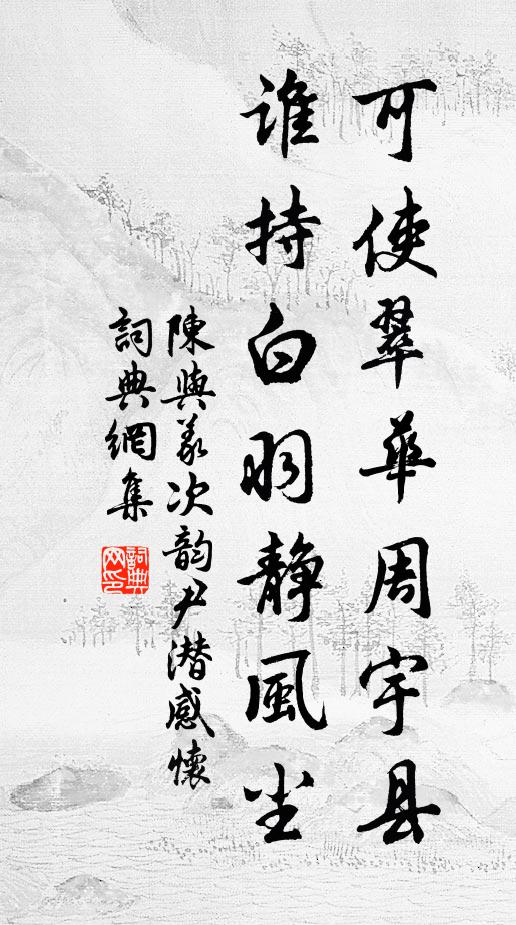 可使翠華周宇县
谁持白羽静風尘
陳與義次韵尹潜感懷
詞典網集
詞典网印